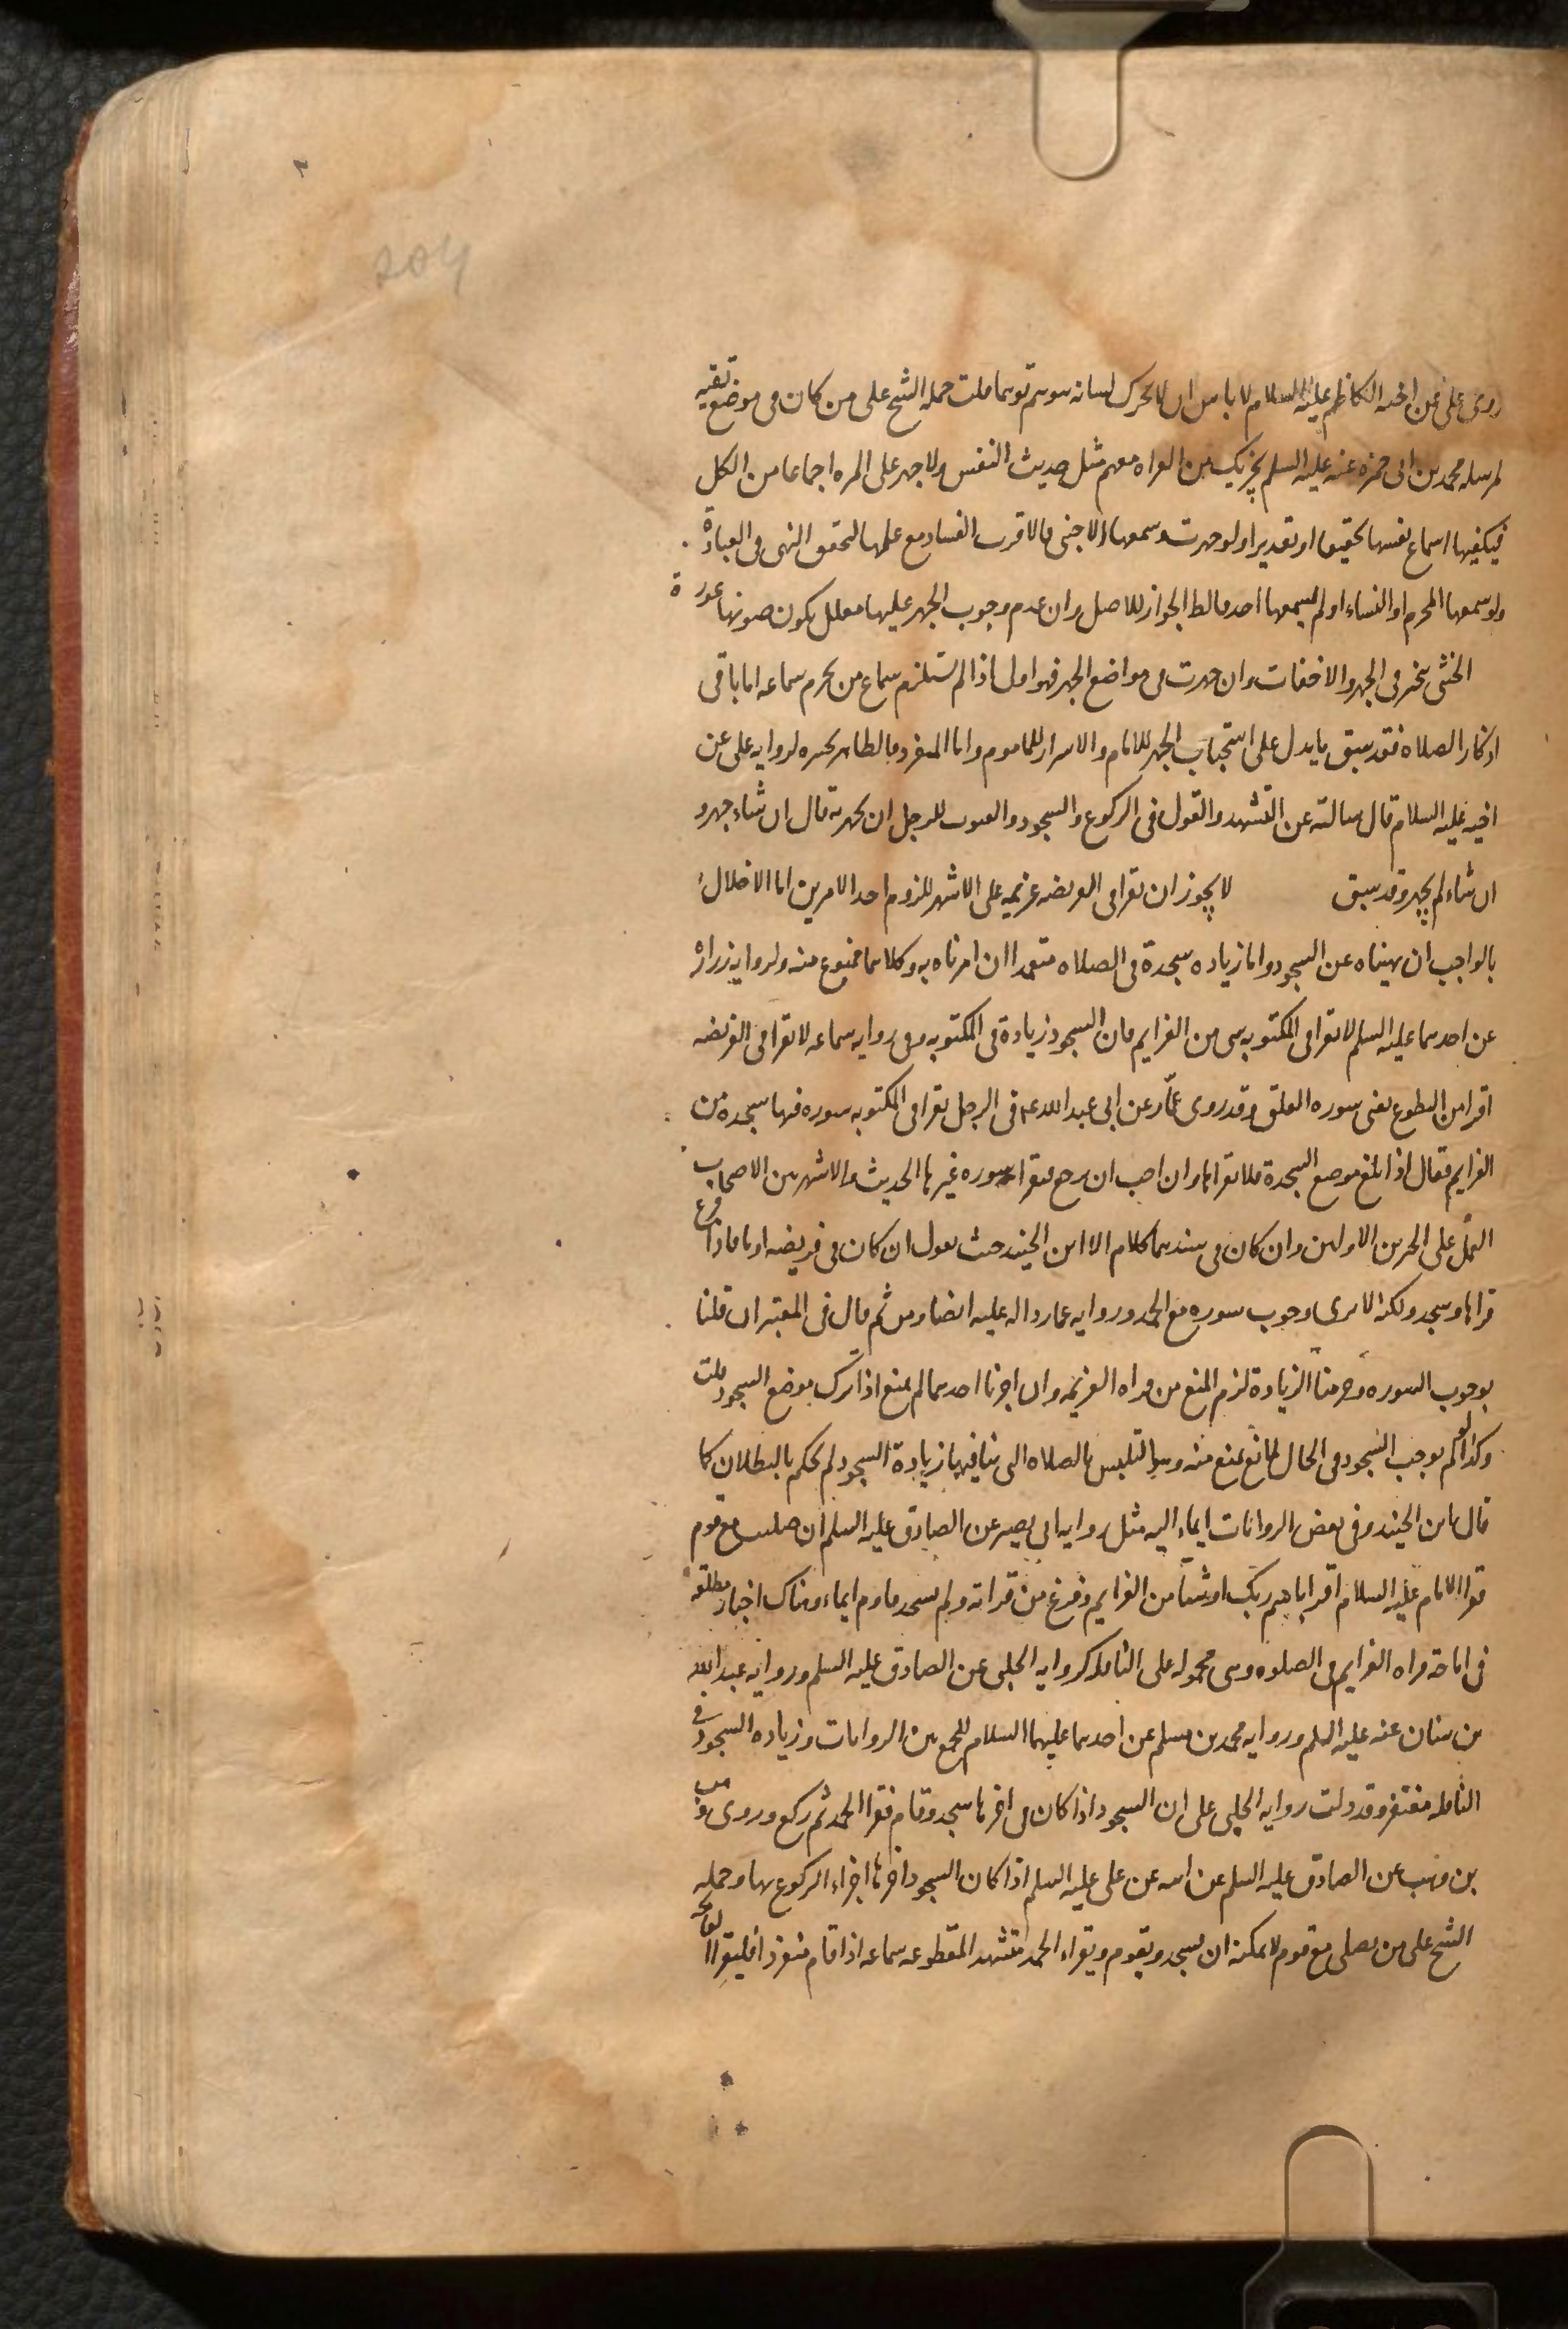 روى على عن اخيه الكاظم عليه السلام لا باس ان لا يحرك لسانه يتوهم توهما قلت حمله الشيخ على من كان فى موضع تقيه
لمرسله محمد بن ابى حمزه عنه عليه السلم يجزيك من القراه معهم مثل حديث النفس ولا جهر على المراه اجماعا من الكل
فيكفيها اسماع نفسها تحقيقا او تقديرا ولو جهرت وسمعها الاجنبى فالاقرب الفساد مع علمها لتحقق النهى فى العبادة
ولو سمعها المحرم او النساء او لم يسمعها احد فالظ الجواز للاصل وان عدم وجوب الجهر عليها معلل بكون صوتها عورة
الخنثى يتخير فى الجهر والاخفات وان جهرت فى مواضع الجهر فهو اولى اذا لم يستلزم سماع من يحرم سماعه اما باقى
اذكار الصلاه فقد سبق ما يدل على استحباب الجهر للامام والاسرار للماموم واما المنفرد فالظاهر تخيره لروايه على عن
اخيه عليه السلام قال سالته عن التشهد والقول فى الركوع والسجود والقنوت للرجل ان يجهر به قال ان شاء جهر و
ان شاء لم يجهر وقد سبق لا يجوز ان يقرا فى الفريضه عزيمه على الاشهر للزوم احد الامرين اما الاخلال
بالواجب ان نهيناه عن السجود واما زياده سجدة فى الصلاه متعمدا ان امرناه به وكلاهما ممنوع منه ولروايه زرارة
عن احدهما عليه السلم لا تقرا فى المكتوبه بشى من العزايم فان السجود زيادة فى المكتوبه وفى روايه سماعه لا تقرا فى الفريضه
اقرا من التطوع يعنى سوره العلق وقد روى عمّار عن ابى عبد الله ع م فى الرجل يقرا فى المكتوبه سوره فيها سجده من
العزايم فقال اذا بلغ موضع السجدة فلا يقراها وان احب ان يرجع فيقرا سوره غيرها الحديث والاشهر بين الاصحاب
العمل على الخبرين الاولين وان كان فى سندهما كلام الا ابن الجنيد حيث يقول ان كان فى فريضه اوما فاذا فرغ
قراها وسجد ولكنه لا يرى وجوب سوره مع الحمد وروايه عمار داله عليه ايضا ومن ثم قال فى المعتبر ان قلنا
بوجوب السوره وحرمنا الزيادة لزم المنع من قراه العزيمه وان اجزنا احدهما لم يمنع اذا ترك موضع السجود قلت
وكذا لو لم نوجب السجود فى الحال لمانع يمنع منه وهو التلبس بالصلاه التى ينافيها زيادة السجود لم نحكم بالبطلان كما
قال ابن الجنيد وفى بعض الروايات ايماء اليه مثل روايه ابى بصير عن الصادق عليه السلم ان صليت مع قوم
فقرا الامام عليه السلام اقرا باسم ربك او شيئا من العزايم وفرغ من قراته ولم يسجد فاوم ايماء وهناك اخبار مطلقه
فى اباحة قراه العزايم فى الصلوه وهى محموله على النافله كروايه الحلبى عن الصادق عليه السلم وروايه عبد الله
بن سنان عنه عليه السلم وروايه محمد بن مسلم عن احدهما عليهما السلام للجمع بين الروايات وزياده السجود فى
النافله مغتفر وقد دلت روايه الحلبى على ان السجود اذا كان فى اخرها سجد وقام فقرا الحمد ثم ركع وروى وهب
بن وهب عن الصادق عليه السلم عن ابيه عن على عليه السلم اذا كان السجود اخرها اجزاء الركوع بها وحمله
الشيخ على من يصلى مع قوم لا يمكنه ان يسجد ويقوم ويقراء الحمد المقطوعه سماعه اذا قام منفردا فليقرا الفاتحه